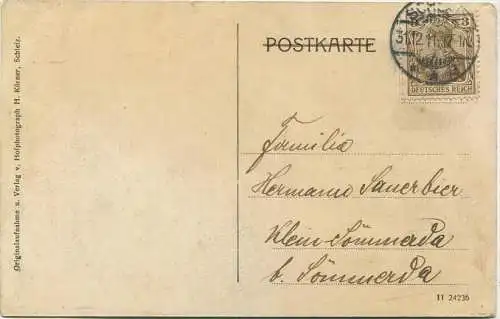 POSTKARTE
3
DEUTSCHES REICH
Familie
Hermann Sauerbier
Klein Sömmerda
b. Sömmerda
11 24235
Originalaufnahme u. Verlag v. Hofphotograph H. Körner, Schleiz.